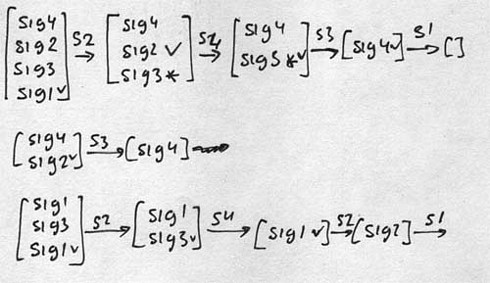 [sig4 sig2 sig3 sig1✓] s2→ [sig4 sig2✓ sig3*] s4→ [sig4 sig3*✓] s3→ [sig4✓] s1→ []
[sig4 sig2✓] s3→ [sig4]
[sig1 sig3 sig1✓] s2→ [sig1 sig3✓] s4→ [sig1✓] s2→ [sig2] s1→